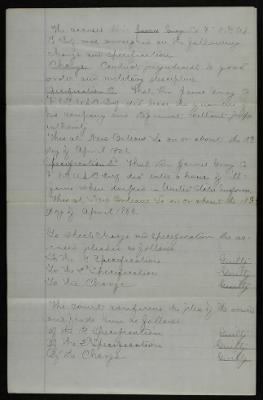 The accused
was arraigned on the following
charge and specification.
Charge. Conduct prejudicial to good
order and military discipline.
Specification 1st That
did leave the quarters of
his company and regiment without proper
authority.
This at New Orleans La on or about the
day of April
Specification 2nd That
did enter a house of ill
fame when dressed in United States uniform.
This at New Orleans La on or about the
day of April
To which Charge and Specification the ac-
cused pleaded as follows
To the 1st Specification Guilty
To the 2nd Specification Guilty
To the Charge Guilty
The court confirms the plea of the accused
and finds him as follows
Of the 1st Specification Guilty
Of the 2nd Specification Guilty
Of the Charge Guilty